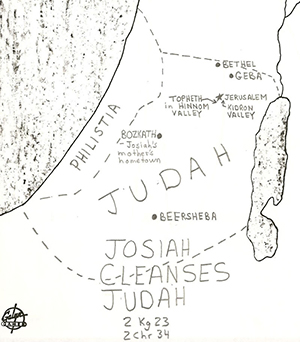 BETHEL
GEBA
TOPHETH
in HINNOM
VALLEY
JERUSALEM
KIDRON
VALLEY
PHILISTIA
BOZKATH
Josiah's
mother's
hometown
JUDAH
BEERSHEBA
JOSIAH
CLEANSES
JUDAH
2 Kg 23
2 Chr 34